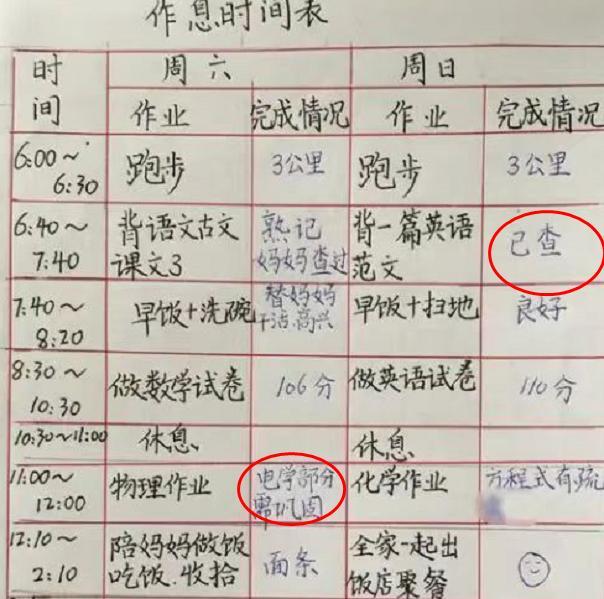 作息时间表
时间 周六 周日
作业 完成情况 作业 完成情况
6:00~6:30 跑步 3公里 跑步 3公里
6:40~7:40 背语文古文课文3 熟记妈妈查过 背一篇英语范文 已查
7:40~8:20 早饭+洗碗 替妈妈干洁.高兴 早饭+扫地 良好
8:30~10:30 做数学试卷 106分 做英语试卷 110分
10:30~11:00 休息 休息
11:00~12:00 物理作业 电学部分需巩固 化学作业 方程式有疏
12:10~2:10 陪妈妈做饭吃饭.收拾 面条 全家一起出饭店聚餐